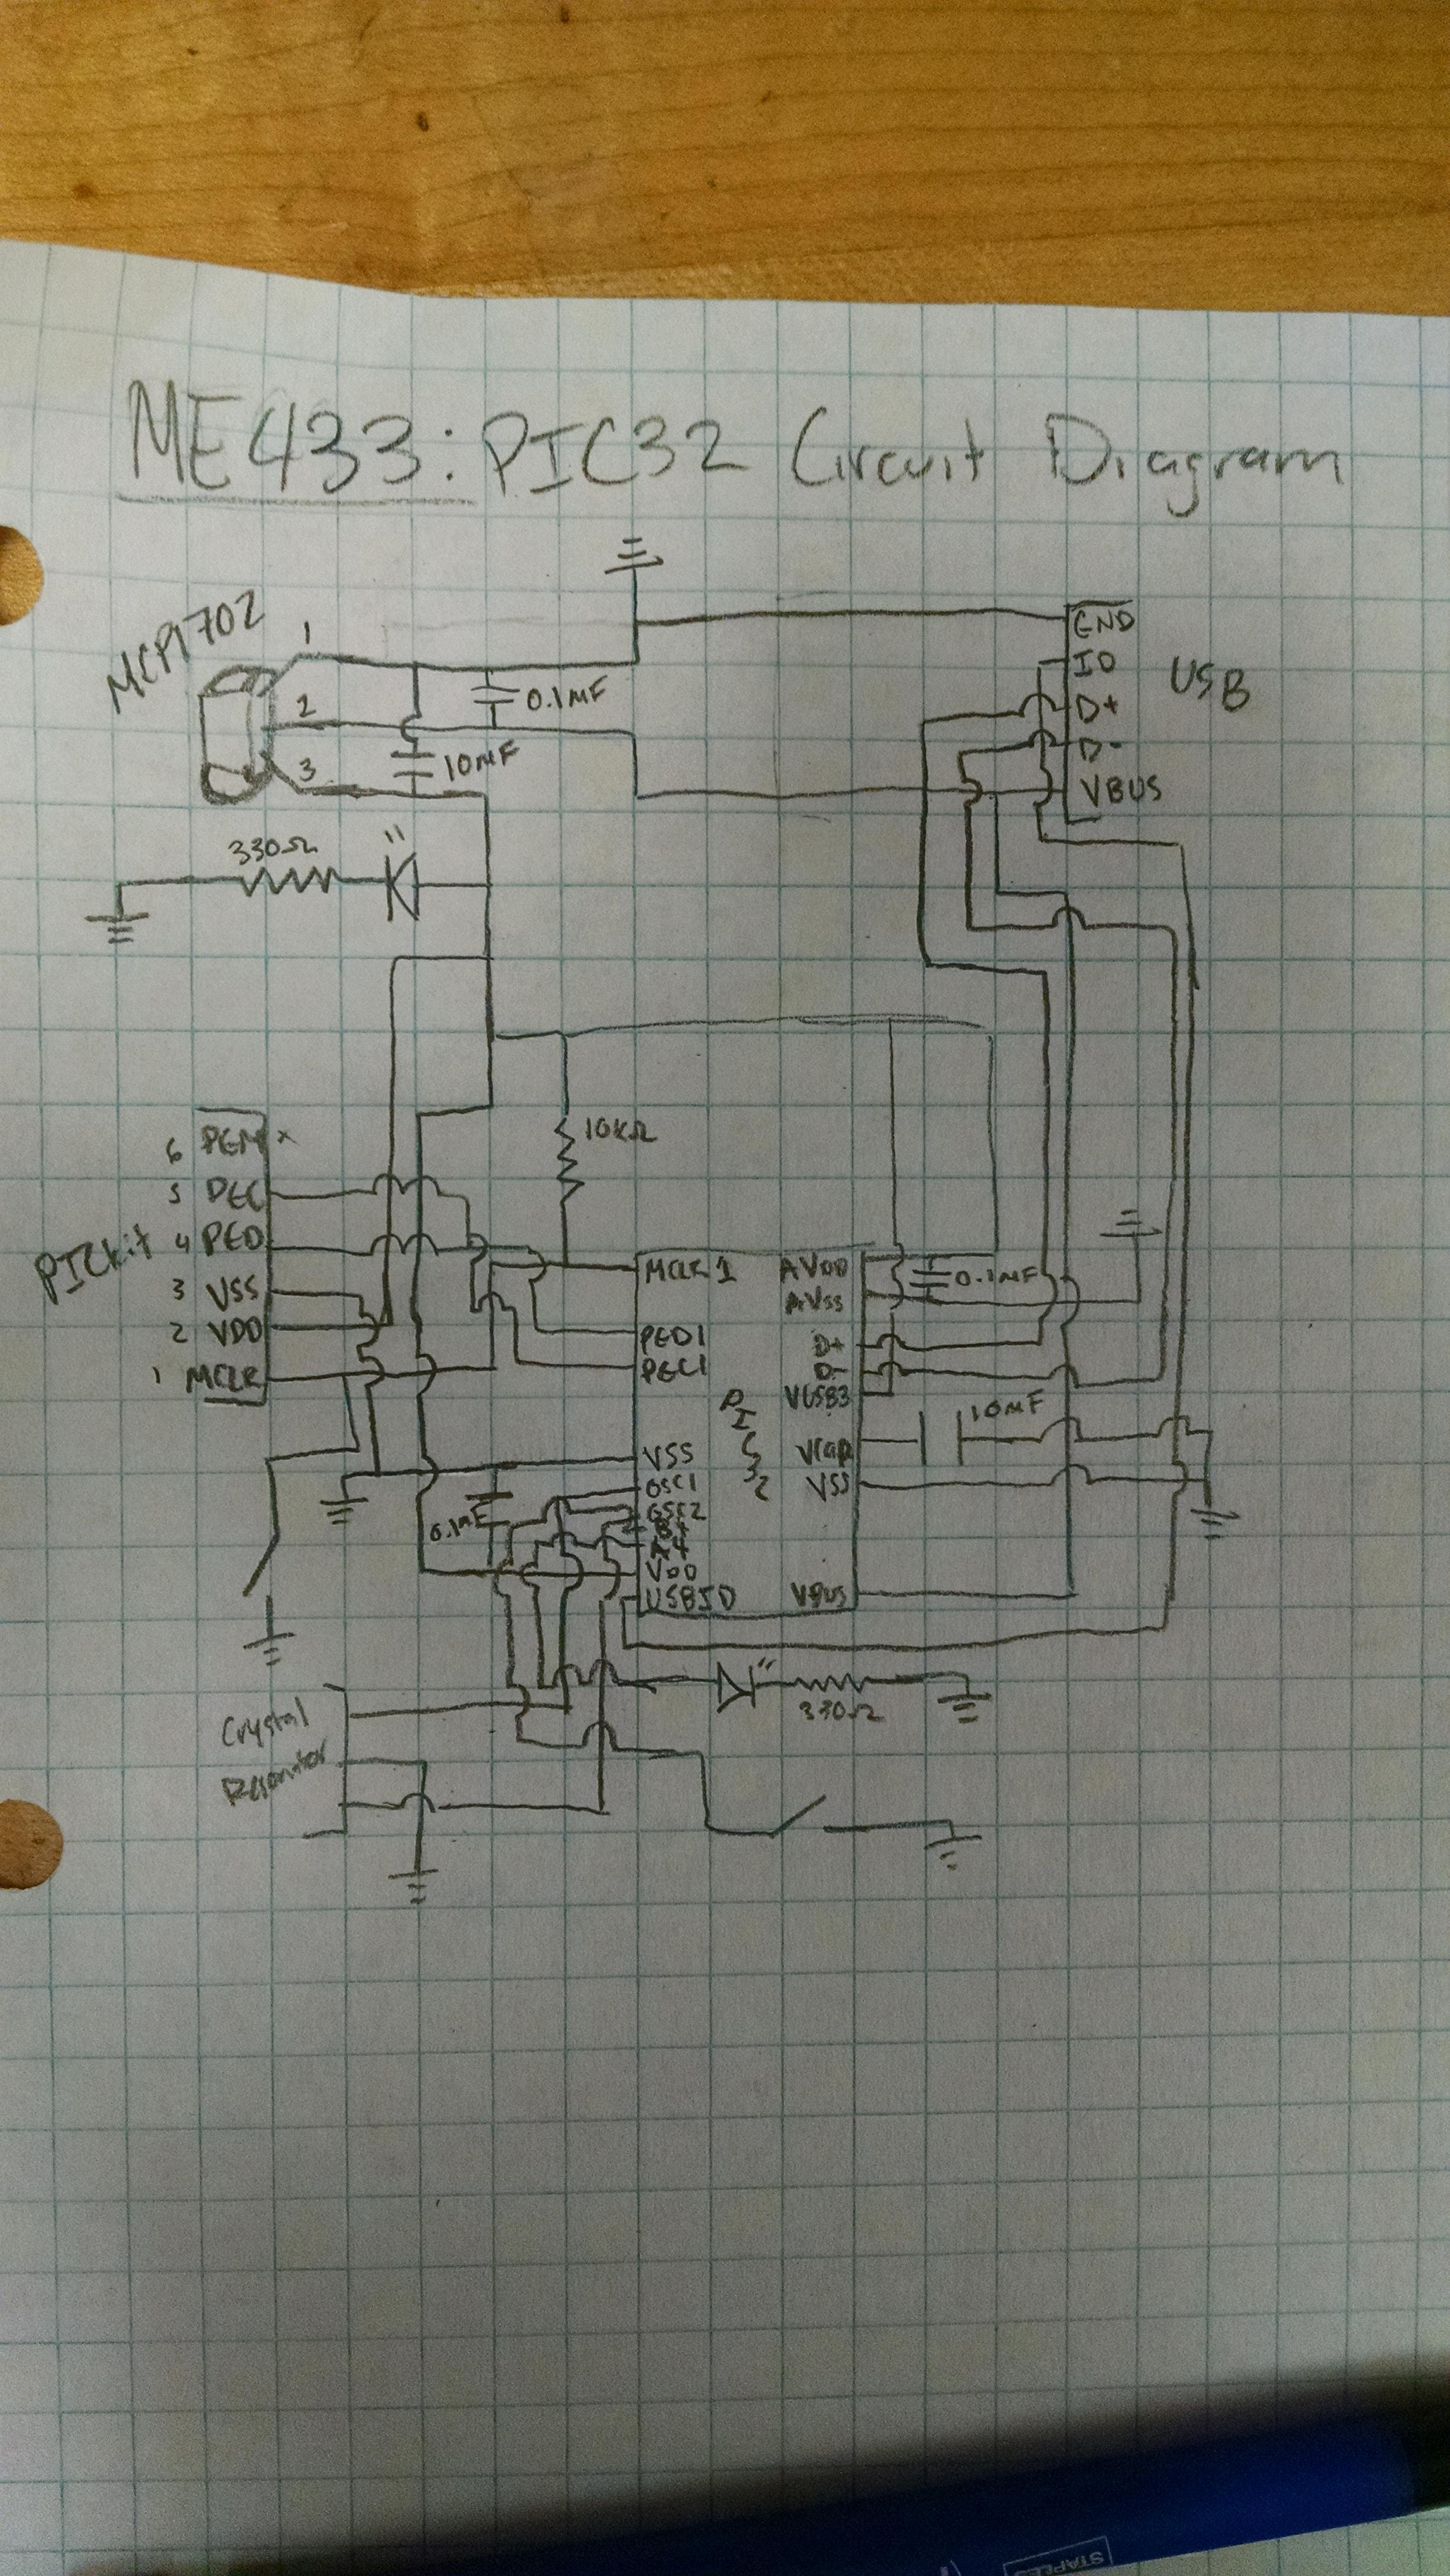 ME433: PIC32 Circuit Diagram
MCP1702
1
2
3
0.1MF
10MF
330Ω
GND
ID
D+
D-
VBUS
USB
10kΩ
PICkit
6 PGM x
5 PEC
4 PED
3 VSS
2 VDD
1 MCLR
MCLR 1
PED1
PEC1
VSS
OSC1
OSC2
B4
A4
VDD
USBID
PIC32
AVDD
AVSS
D+
D-
VUSB3
Vcap
VSS
VBUS
0.1MF
10MF
0.1MF
330Ω
Crystal
Resonator
STAPLES